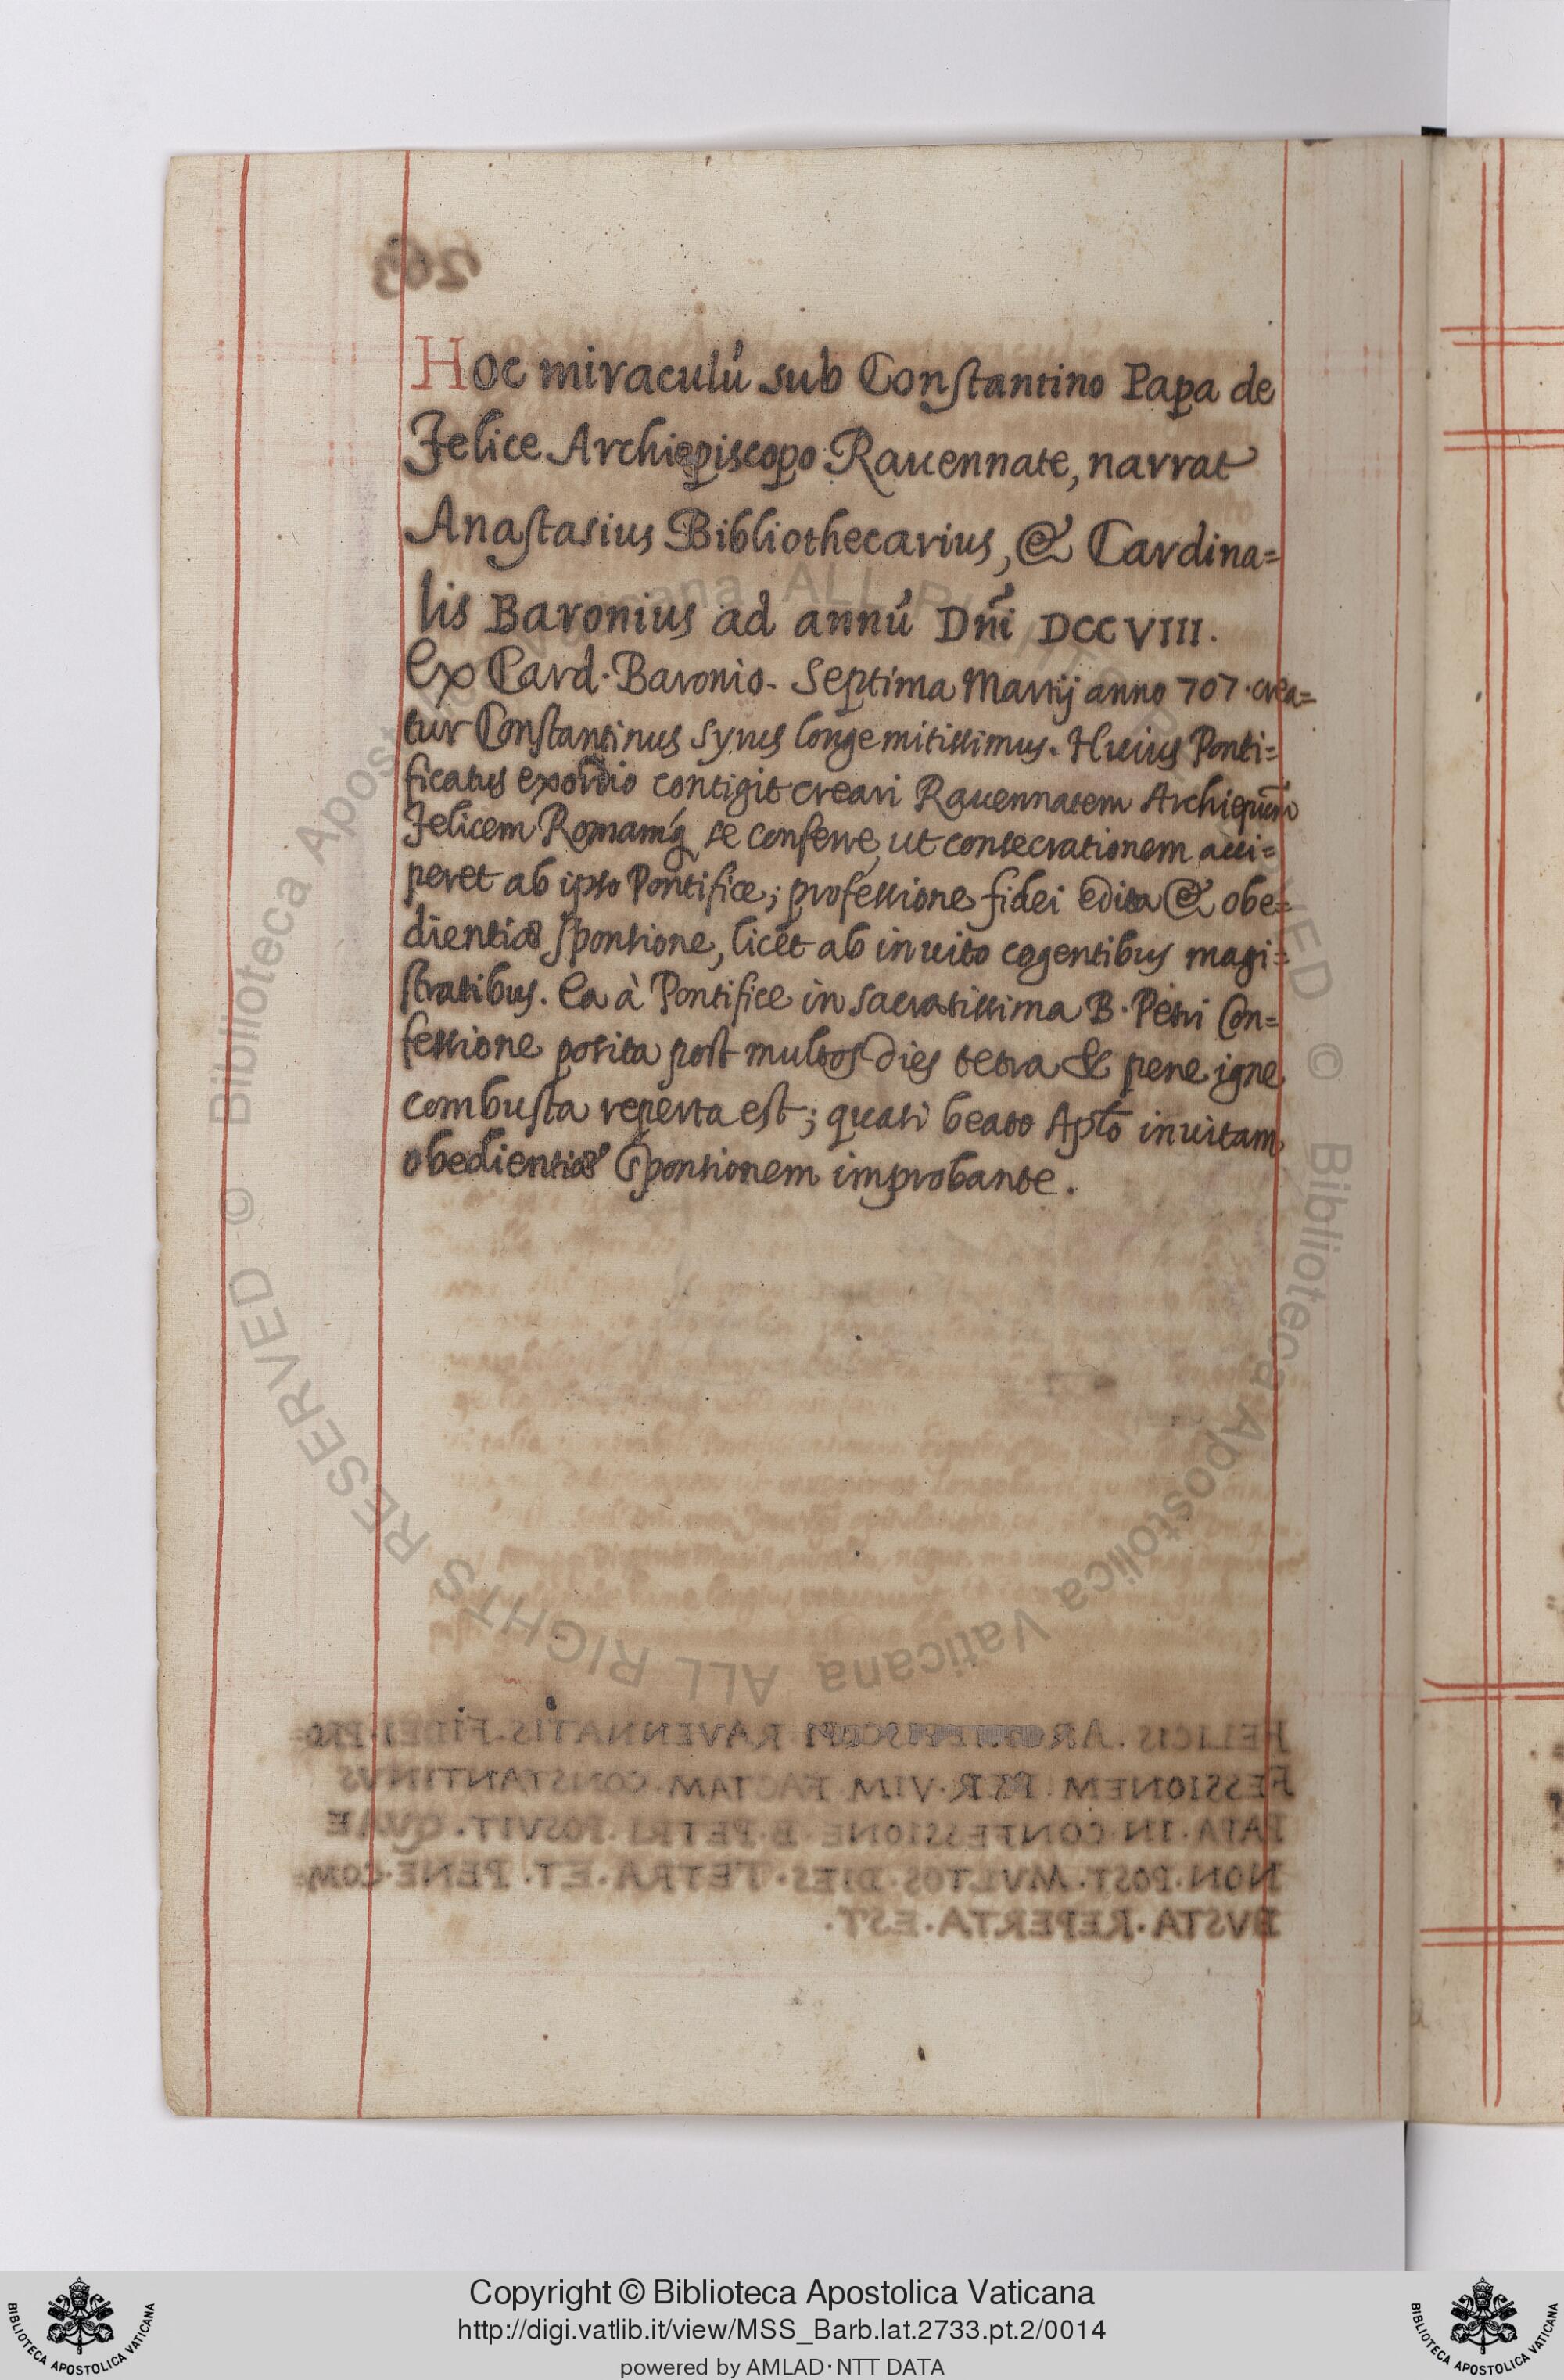 Hoc miraculũ sub Constantino Papa de
Felice Archiepiscopo Rauennate, narrat
Anastasius Bibliothecarius, & Cardina=
lis Baronius ad annũ Dñi DCCVIII.
Ex Card. Baronio. Septima Martij anno 707. crea=
tur Constantinus Syrus longe mitissimus. Huius Ponti=
ficatus exordio contigit creari Rauennatem Archiepũm
Felicem Romamq́ se conferre, ut consecrationem acci=
peret ab ipso Pontifice; professione fidei edita & obe=
dientiæ sponsione, licèt ab inuito cogentibus magi=
stratibus. Ea à Pontifice in sacratissima B. Petri Con=
fessione posita post multos dies tetra & pene igne
combusta reperta est; quasi beato Aplõ inuitam
obedientiæ sponsionem improbante.
FELICIS. RAVENNATIS. FIDEI. PRO=
FESSIONEM PER. VIM. FACTAM. CONSTANTINVS
PAPA. IN. CONFESSIONE. B. PETRI. POSVIT. QVAE
NON. POST. MVLTOS. DIES. TETRA. ET. PENE. COM=
BVSTA. REPERTA. EST.
Copyright © Biblioteca Apostolica Vaticana
http://digi.vatlib.it/view/MSS_Barb.lat.2733.pt.2/0014
powered by AMLAD·NTT DATA
BIBLIOTECA APOSTOLICA VATICANA
BIBLIOTECA APOSTOLICA VATICANA